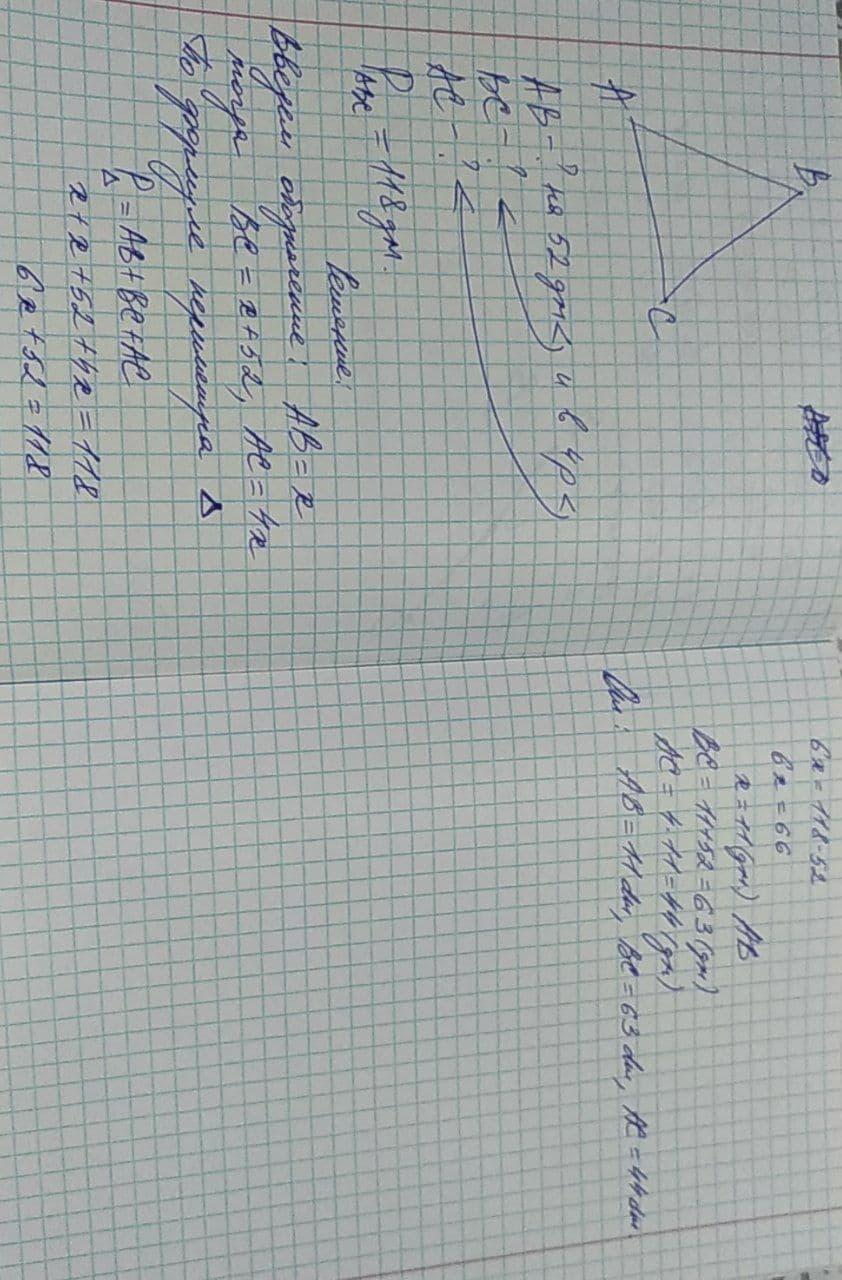 B
A
C
AB - ? на 52 дм <, и в 4 р <,
BC - ?
AC - ?
P ABC = 118 дм.
Решение:
Введем обозначение: AB = x
тогда BC = x + 52, AC = 4x
По формуле периметра Δ
P Δ = AB + BC + AC
x + x + 52 + 4x = 118
6x + 52 = 118
6x = 118 - 52
6x = 66
x = 11 (дм) AB
BC = 11 + 52 = 63 (дм)
AC = 4 · 11 = 44 (дм)
AB = 11 dm, BC = 63 dm, AC = 44 dm.